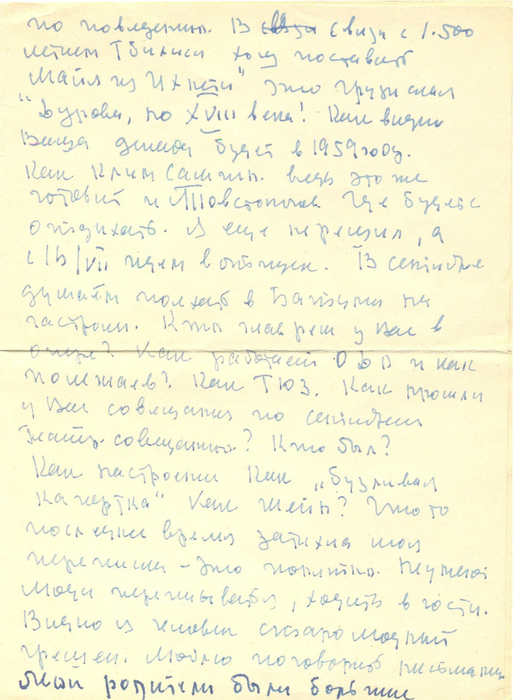 по поведению. В связи с 1.500
летием Тбилиси хочу поставить
"Майя из Цхнети" это грузинская
"Дурова, но XVIII века! Как видно
Ваша декада будет в 1959 году.
Как Клим Самгин. ведь это же
готовит и Товстоногов где будете
отдыхать. Я еще не решил, а
с 16/VII идем в отпуск. В сентябре
думаем поехать в Батуми на
гастроли. Кто главреж у Вас в
опере? Как работает и как
Как ТЮЗ. Как прошли
у Вас совещания по
совещания? Кто был?
Как настроение Как „бузливая
Как Что то
последнее время затихла моя
переписка – это понятно.
люди переписываться, ходить в гости.
Видно я человек старомодный
грешен. Люблю поговорить письмами
Мои родители были большие